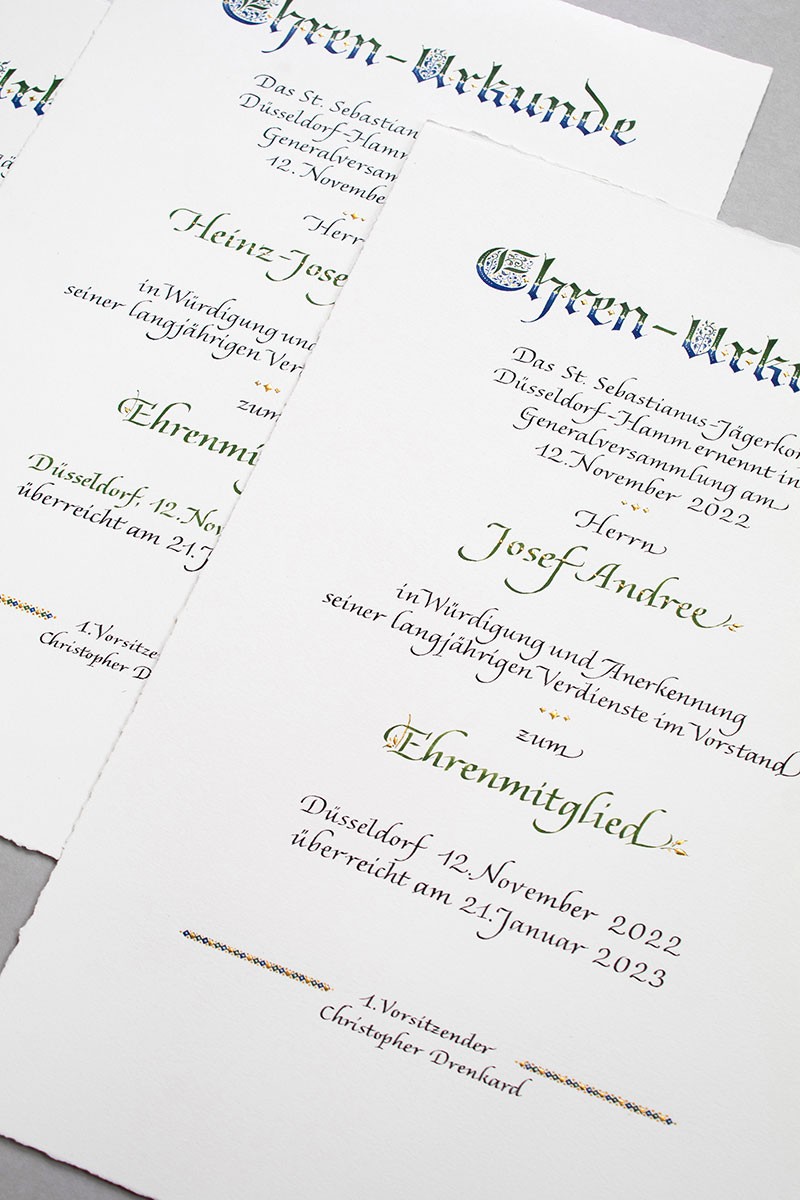 Ehren-Urkunde
Das St. Sebastian
Düsseldorf-Hamm
Generalversam
12. Novembe
Herr
Heinz-Jose
in Würdigung und
seiner langjährigen Ver
zum
Ehrenmi
Düsseldorf, 12. Nov
überreicht am 21. J
1. Vorsitze
Christopher D
Ehren-Urku
Das St. Sebastianus-Jägerkor
Düsseldorf-Hamm ernennt in
Generalversammlung am
12. November 2022
Herrn
Josef Andree
in Würdigung und Anerkennung
seiner langjährigen Verdienste im Vorstand
zum
Ehrenmitglied
Düsseldorf 12. November 2022
überreicht am 21. Januar 2023
1. Vorsitzender
Christopher Drenkard